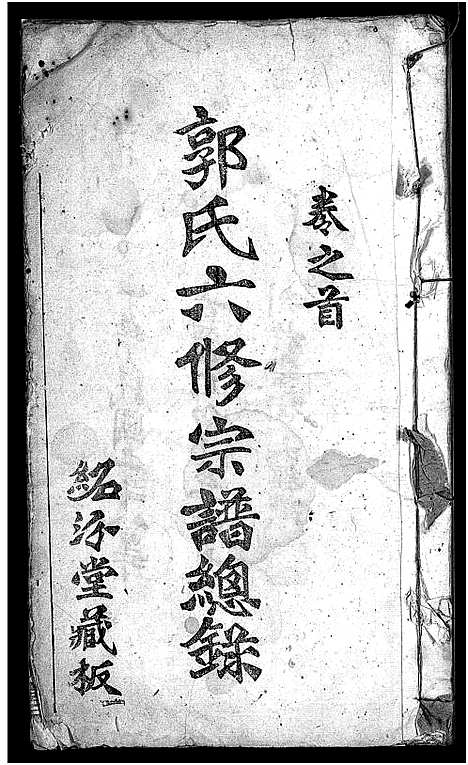 卷之首
郭氏六修宗譜總錄
紹汾堂藏板